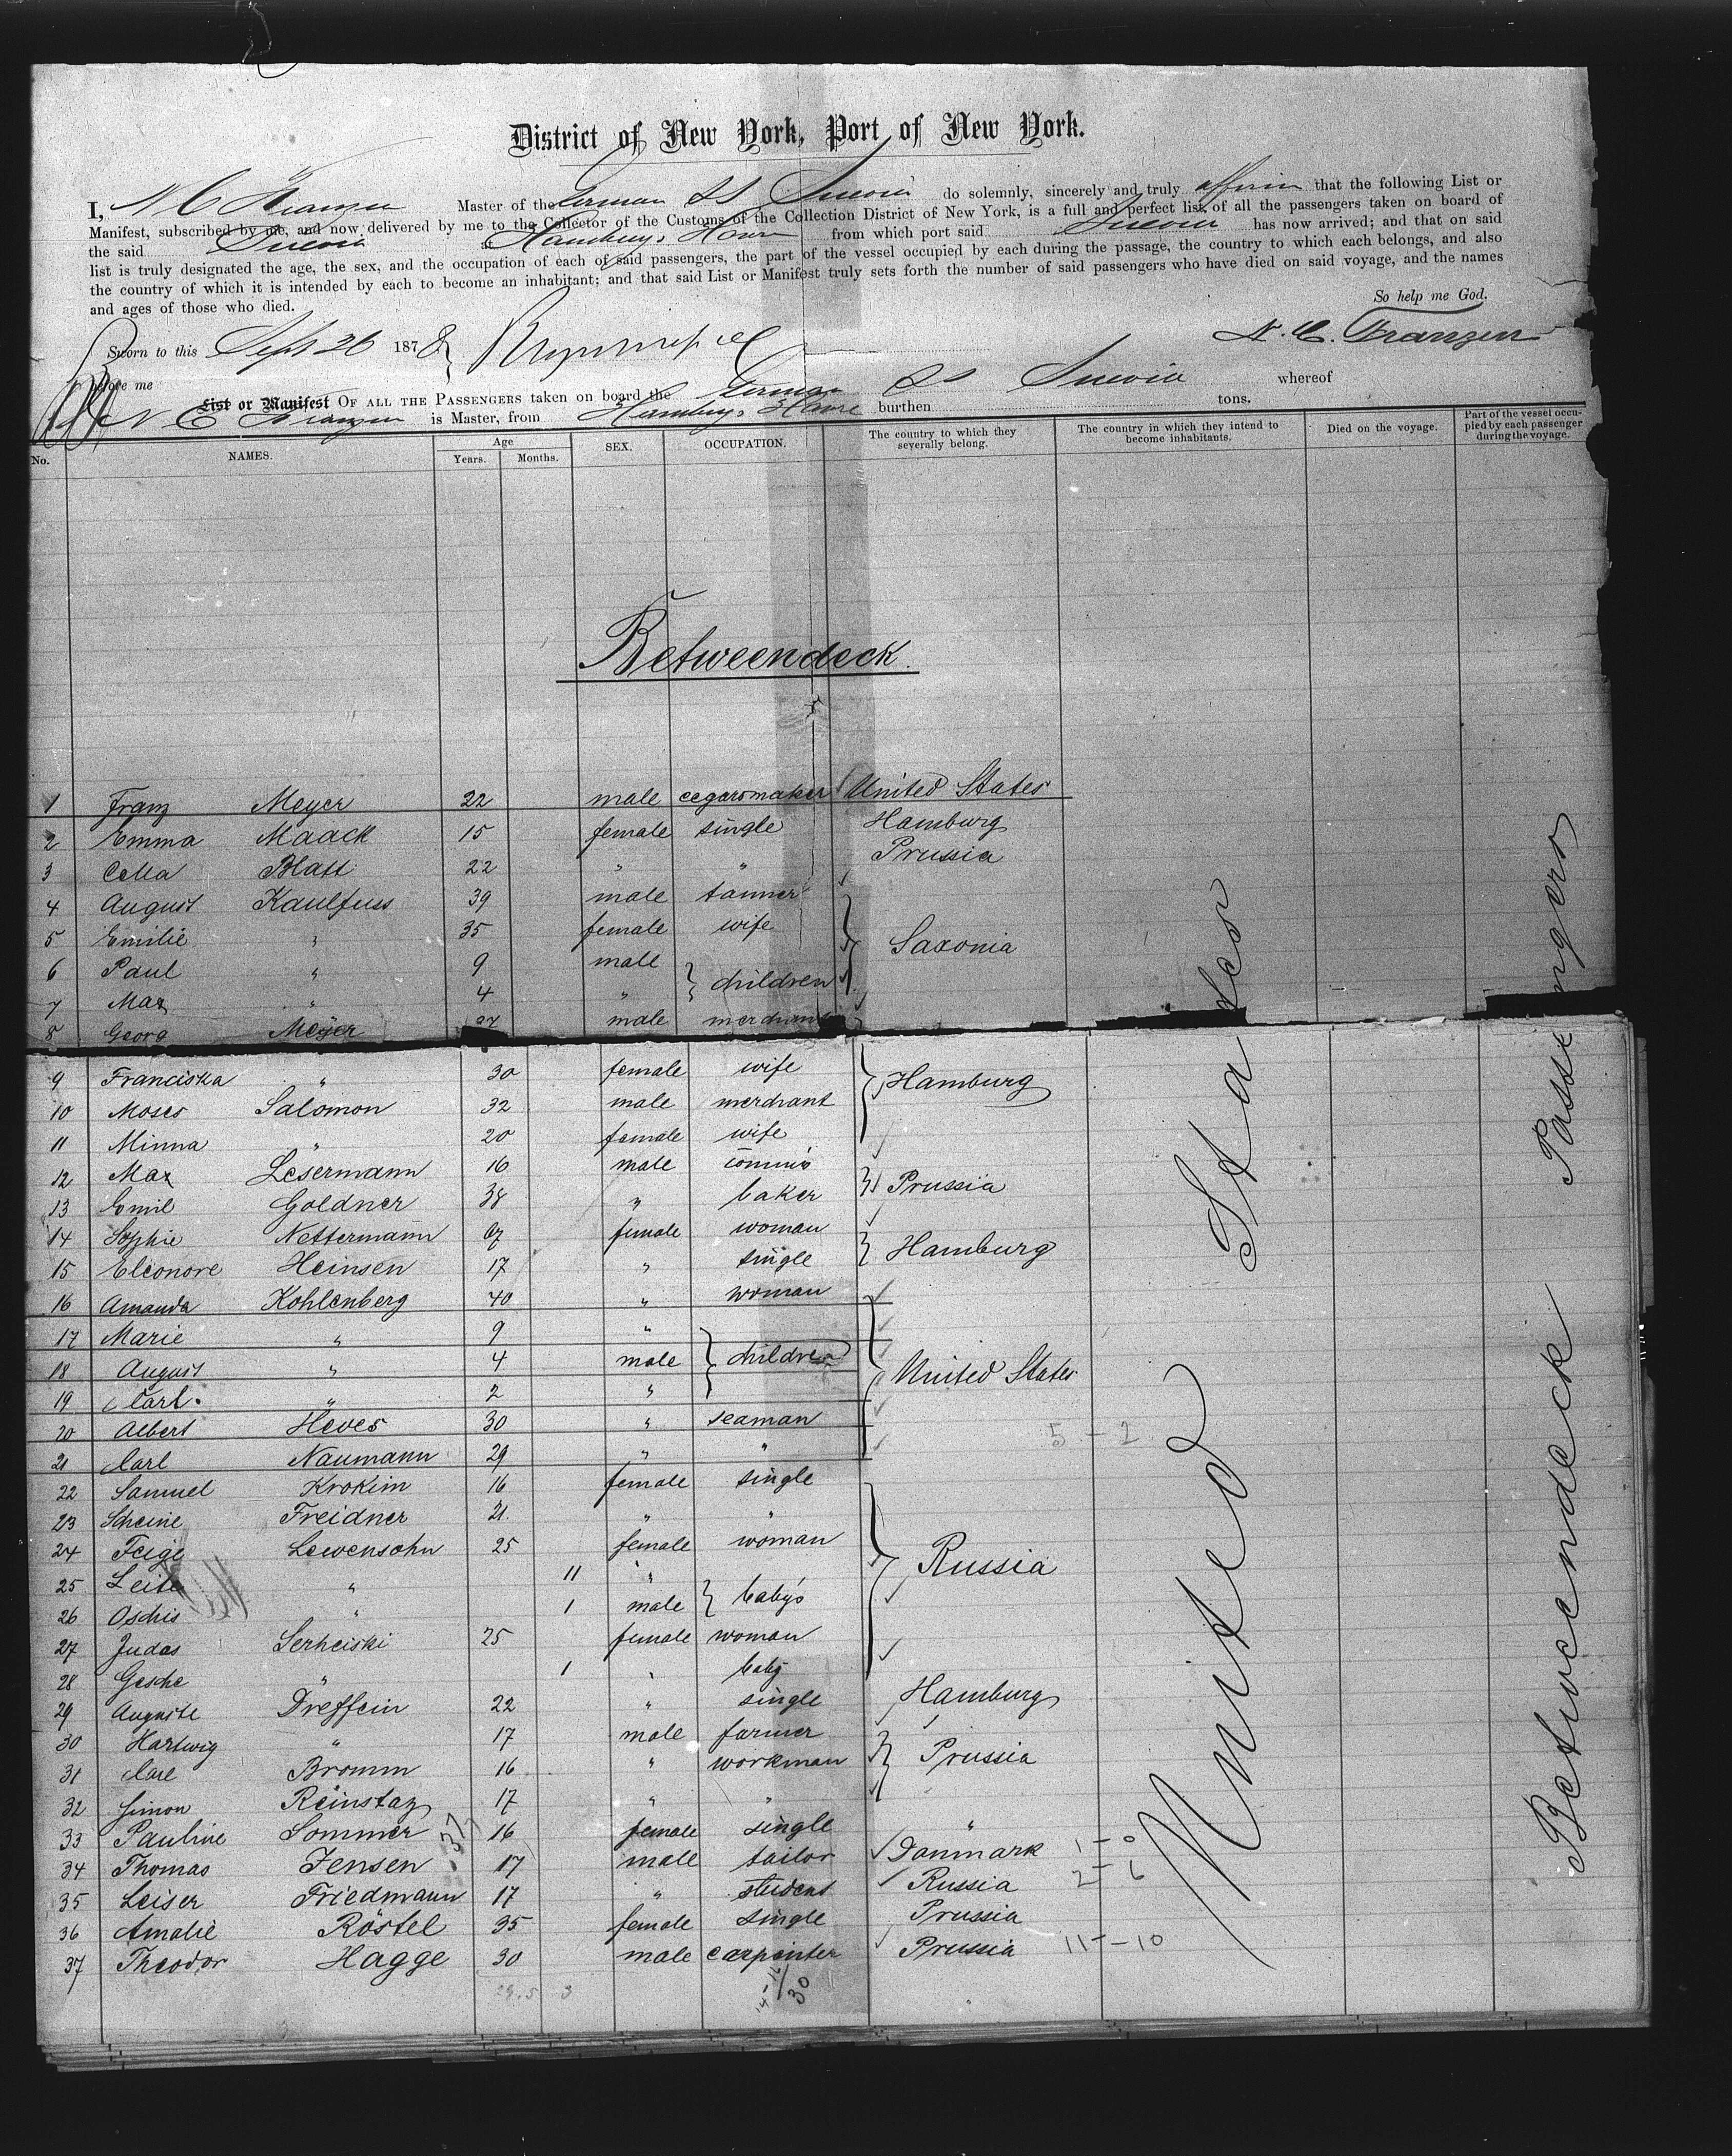 District of New York, Port of New York.
I, N C Franzen Master of the German SS Suevia do solemnly, sincerely and truly affirm that the following List or
Manifest, subscribed by me, and now delivered by me to the Collector of the Customs of the Collection District of New York, is a full and perfect list of all the passengers taken on board of
the said Suevia Hamburg & Havre from which port said Suevia has now arrived; and that on said
list is truly designated the age, the sex, and the occupation of each of said passengers, the part of the vessel occupied by each during the passage, the country to which each belongs, and also
the country of which it is intended by each to become an inhabitant; and that said List or Manifest truly sets forth the number of said passengers who have died on said voyage, and the names
and ages of those who died.
So help me God.
Sworn to this Sept 26 1878
N. C. Franzen
before me
List or Manifest OF ALL THE PASSENGERS taken on board the German SS Suevia whereof
N C Franzen is Master, from Hamburg & Havre burthen tons.
No. NAMES. Age Years. Months. SEX. OCCUPATION. The country to which they severally belong. The country in which they intend to become inhabitants. Died on the voyage. Part of the vessel occupied by each passenger during the voyage.
Betweendeck
1 Franz Meyer 22 male cegarsmaker United States
2 Emma Maack 15 female single Hamburg
3 Celia Blatt 22 " " Prussia
4 August Kaulfuss 39 male tanner
5 Emilie " 35 female wife Saxonia
6 Paul " 9 male
7 Max " 4 " children
8 Georg Meyer 27 male merchant
9 Franciska " 30 female wife Hamburg
10 Moses Salomon 32 male merchant
11 Minna " 20 female wife
12 Max Lesermann 16 male commis
13 Emil Goldner 38 " baker Prussia
14 Sophie Nettermann female woman
15 Eleonore Heinsen 17 " single Hamburg
16 Amanda Kohlenberg 40 " woman
17 Marie " 9 "
18 August " 4 male children United States
19 Carl " 2 "
20 Albert Heves 30 " seaman 5 - 2
21 Carl Naumann 29 " "
22 Samuel Krokim 16 female single
23 Scheine Freidner 21 " "
24 Feige Lewensohn 25 female woman Russia
25 Leite " 11 "
26 Oschis " 1 male babys
27 Judas Serheiski 25 female woman
28 Gesche " 1 " baby
29 Auguste Dreffein 22 " single Hamburg
30 Hartwig " 17 male farmer
31 Carl Bromm 16 " workman Prussia
32 Simon Reinstaz 17 " "
33 Pauline Sommer 16 female single "
34 Thomas Jensen 17 male tailor Danmark 1 - 0
35 Leiser Friedmann 17 " student Russia 2 - 6
36 Amalie Röstel 35 female single Prussia
37 Theodor Hagge 30 male carpenter Prussia 11 - 10
United States
Betweendeck Passengers